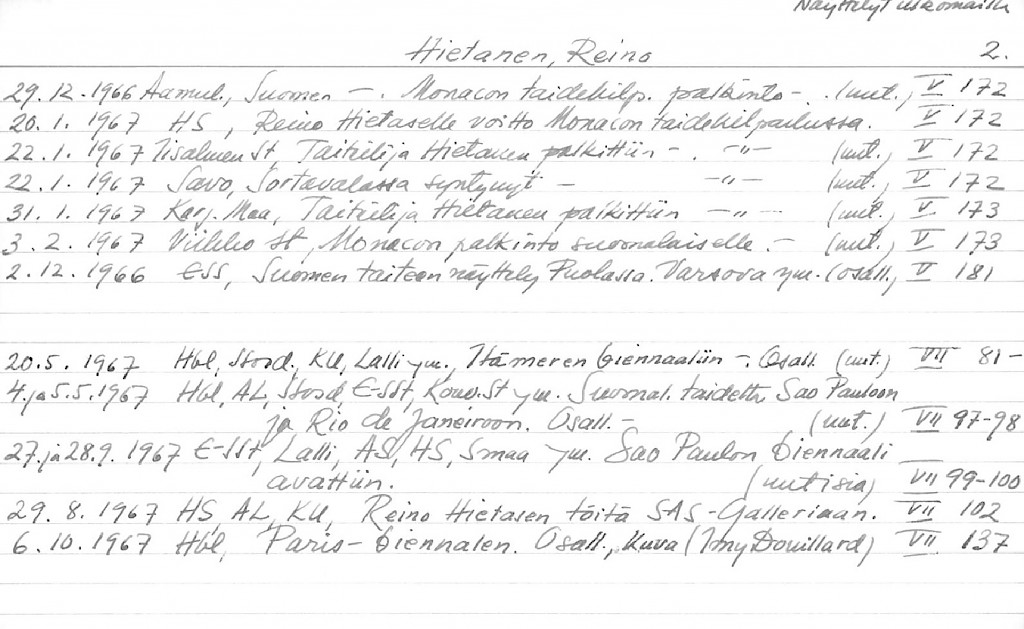 Näyttelyt ulkomailla
Hietanen, Reino 2.
29.12.1966 Aamul., Suomen —. Monacon taidekilp. palkinto -. (uut.) V 172
20.1.1967 HS, Reino Hietaselle voitto Monacon taidekilpailussa. V 172
22.1.1967 Iisalmen St, Taiteilija Hietanen palkittiin -. -"- (uut.) V 172
22.1.1967 Savo, Sortavalassa syntynyt — -"- (uut.) V 172
31.1.1967 Karj. Maa, Taiteilija Hietanen palkittiin -"- (uut.) V 173
3.2.1967 Viikko st, Monacon palkinto suomalaiselle.- (uut.) V 173
2.12.1966 ESS, Suomen taiteen näyttely Puolassa. Varsova ym. (osall.) V 181
20.5.1967 Hbl, Stosd., KU, Lalli ym., Itämeren biennaaliin -. Osall. (uut.) VII 81-
4. ja 5.5.1967 Hbl, AL, Stosd, E-SSt, Kouv.St ym. Suomal. taidetta Sao Pauloon
ja Rio de Janeiroon. Osall.- (uut.) VII 97-98
27. ja 28.9.1967 E-SSt, Lalli, AS, HS, Smaa ym. Sao Paulon biennaali
avattiin. (uutisia) VII 99-100
29.8.1967 HS, AL, KU, Reino Hietasen töitä SAS-Galleriaan. VII 102
6.10.1967 Hbl, Paris-biennalen. Osall., kuva (Imy Douillard) VII 137